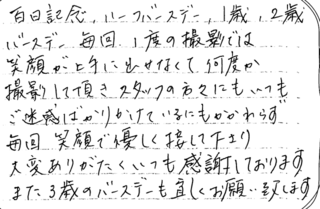 百日記念、ハーフバースデー、1歳、2歳
バースデー 毎回、1度の撮影では
笑顔が上手に出せなくて何度か
撮影して頂きスタッフの方々にもいつも
ご迷惑ばかりかけているにもかかわらず
毎回 笑顔で優しく接して下さり
大変ありがたくいつも感謝しております
また3歳のバースデーも宜しくお願い致します